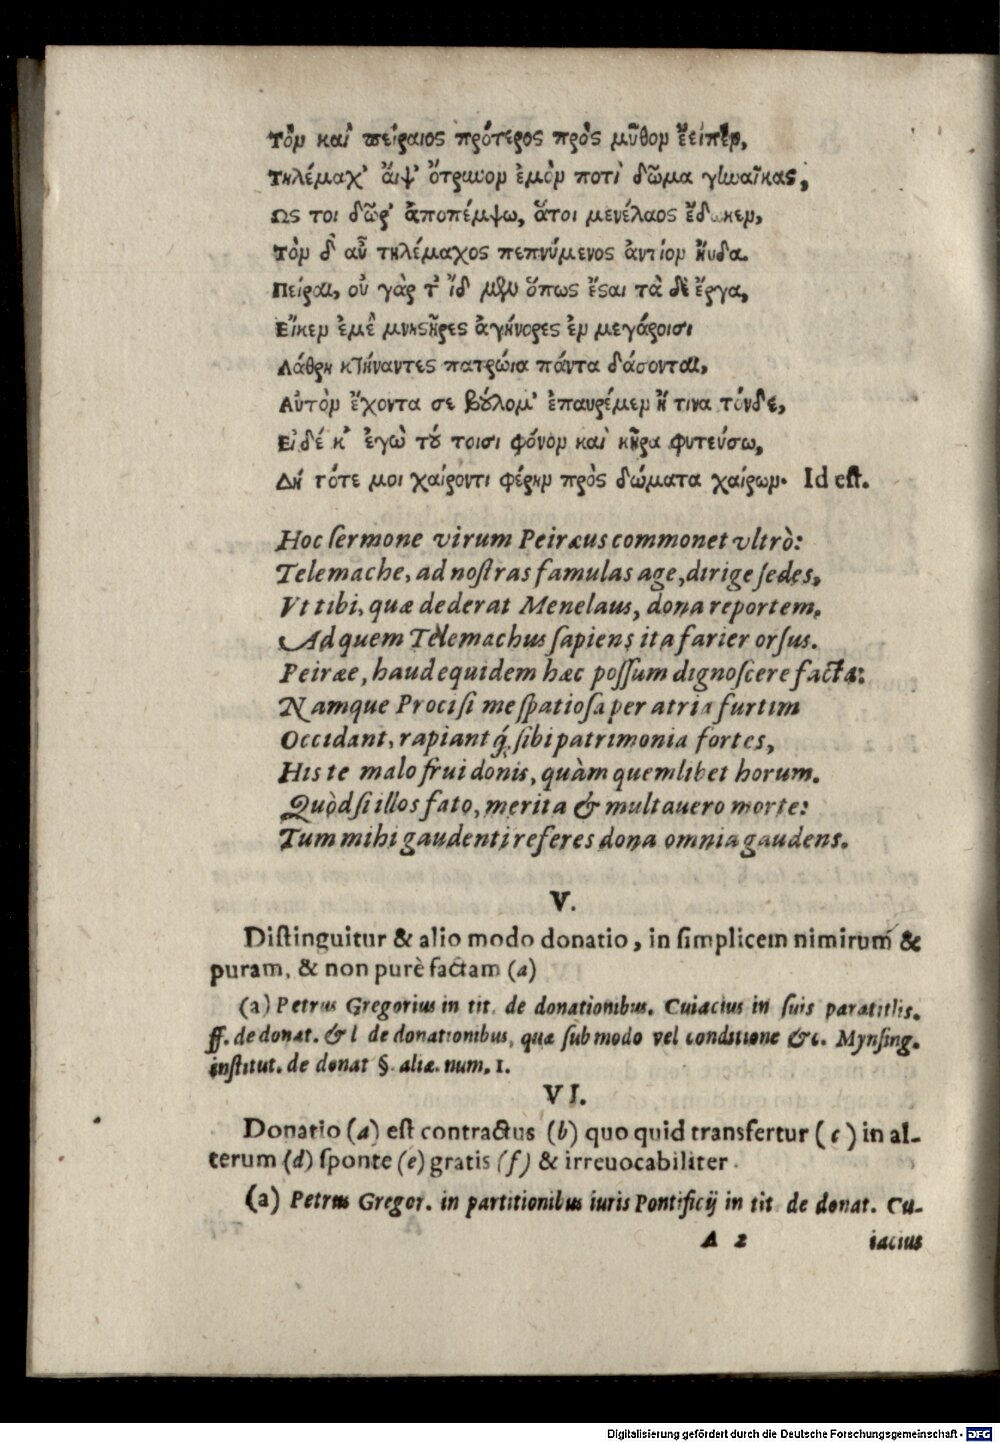 Τὸν καὶ πείραιος πρότερος πρὸς μῦθον ἔειπεν,
Τηλέμαχ' ἄιψ' ὄτρυνον ἐμὸν ποτὶ δῶμα γυναῖκας,
Ως τοι δῶρ' ἀποπέμψω, ἅτοι μενέλαος ἔδωκεν,
Τὸν δ' αὖ τηλέμαχος πεπνύμενος ἀντίον ἤυδα.
Πείραι, οὐ γὰρ τ' ἴδμεν ὅπως ἔσαι τὰ δὲ ἔργα,
Εἴκεν ἐμὲ μνηστῆρες ἀγήνορες ἐν μεγάροισι
Λάθρη κτήναντες πατρώια πάντα δάσονται,
Αὐτὸν ἔχοντα σε βούλομ' ἐπαυρέμεν ἤ τινα τόνδε,
Ει δέ κ' ἐγὼ τού τοισι φόνον καὶ κῆρα φυτεύσω,
Δή τότε μοι χαίροντι φέρην πρὸς δώματα χαίρων. Id est.
Hoc sermone virum Peiræus commonet vltrò:
Telemache, ad nostras famulas age, dirige sedes,
Vt tibi, quæ dederat Menelaus, dona reportem.
Ad quem Telemachus sapiens ita farier orsus.
Peiræe, haud equidem hæc possum dignoscere facta:
Namque Proci si me spatiosa per atria furtim
Occidant, rapiantq́; sibi patrimonia fortes,
His te malo frui donis, quàm quemlibet horum.
Quòd si illos fato, merita & multauero morte:
Tum mihi gaudenti referes dona omnia gaudens.
V.
Distinguitur & alio modo donatio, in simplicem nimirum &
puram, & non purè factam (a)
(a) Petrus Gregorius in tit. de donationibus. Cuiacius in suis paratitlis.
ff. de donat. & l de donationibus, quæ sub modo vel conditione &c. Mynsing.
institut. de donat §. aliæ. num. 1.
VI.
Donatio (a) est contractus (b) quo quid transfertur (c) in al-
terum (d) sponte (e) gratis (f) & irreuocabiliter.
(a) Petrus Gregor. in partitionibus iuris Pontificij in tit de donat. Cu-
A 2 iacius
Digitalisierung gefördert durch die Deutsche Forschungsgemeinschaft - DFG